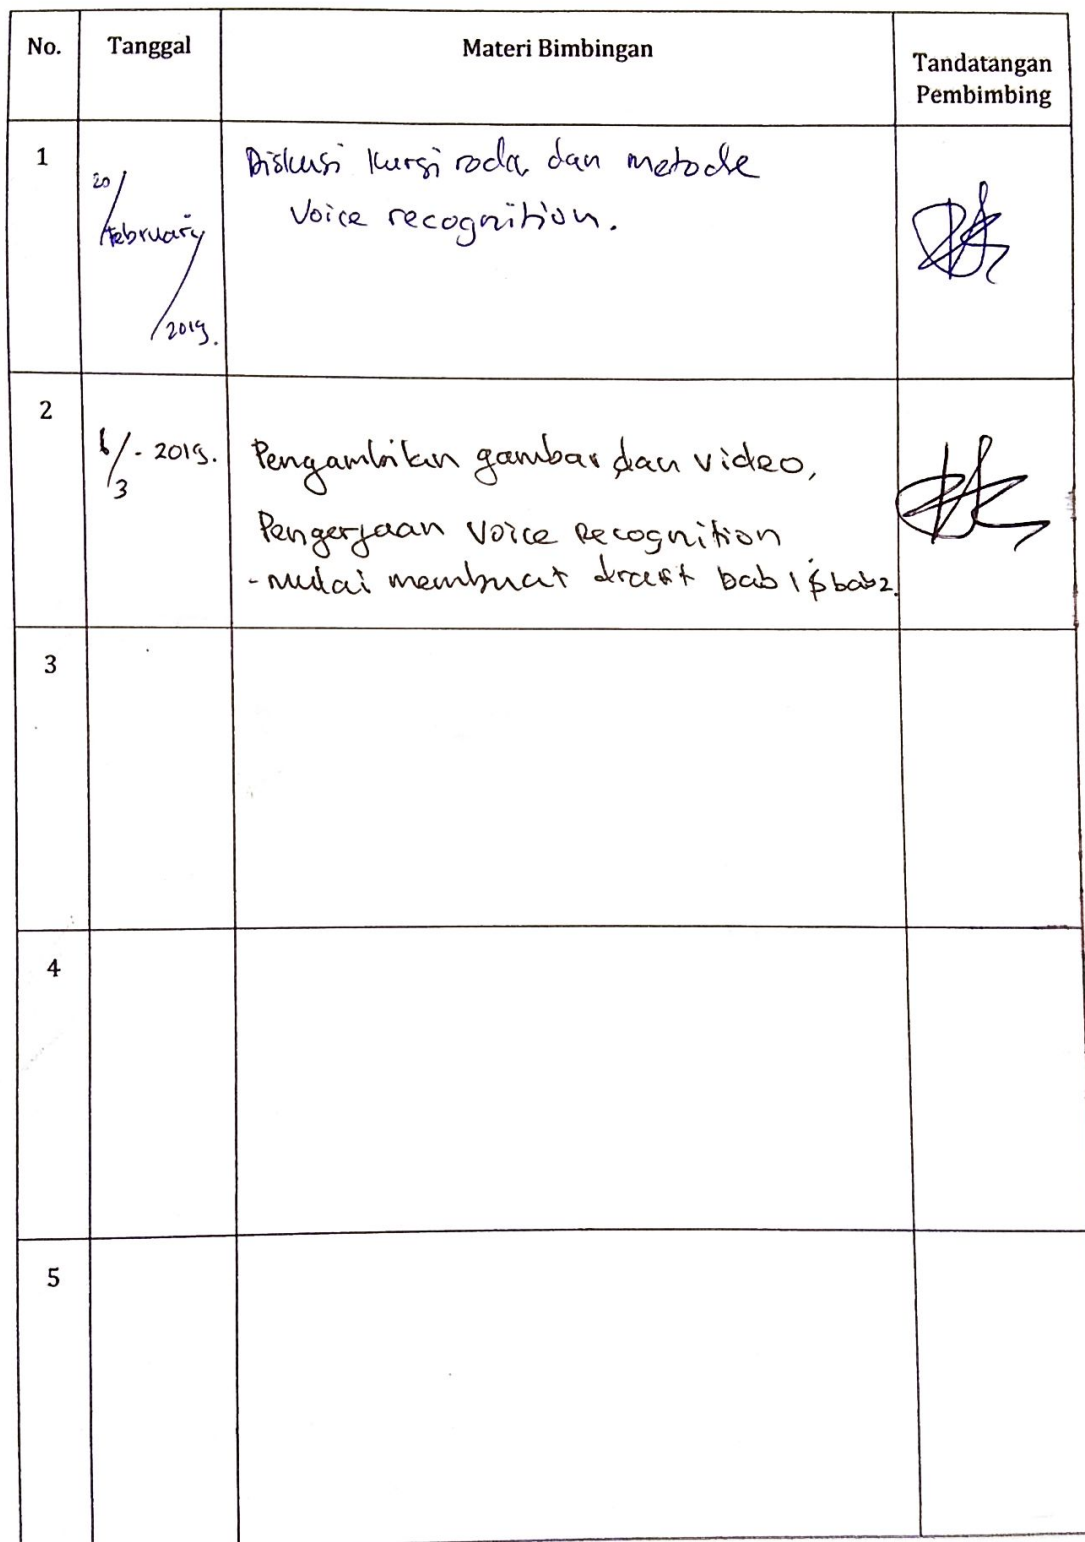 No. Tanggal Materi Bimbingan Tandatangan
Pembimbing
1
20/
February
/2019.
Diskusi kursi roda dan metode
Voice recognition.
2
6/3 - 2019.
Pengambilan gambar dan video,
Pengerjaan Voice Recognition
- mulai membuat draft bab 1 & bab 2.
3
4
5